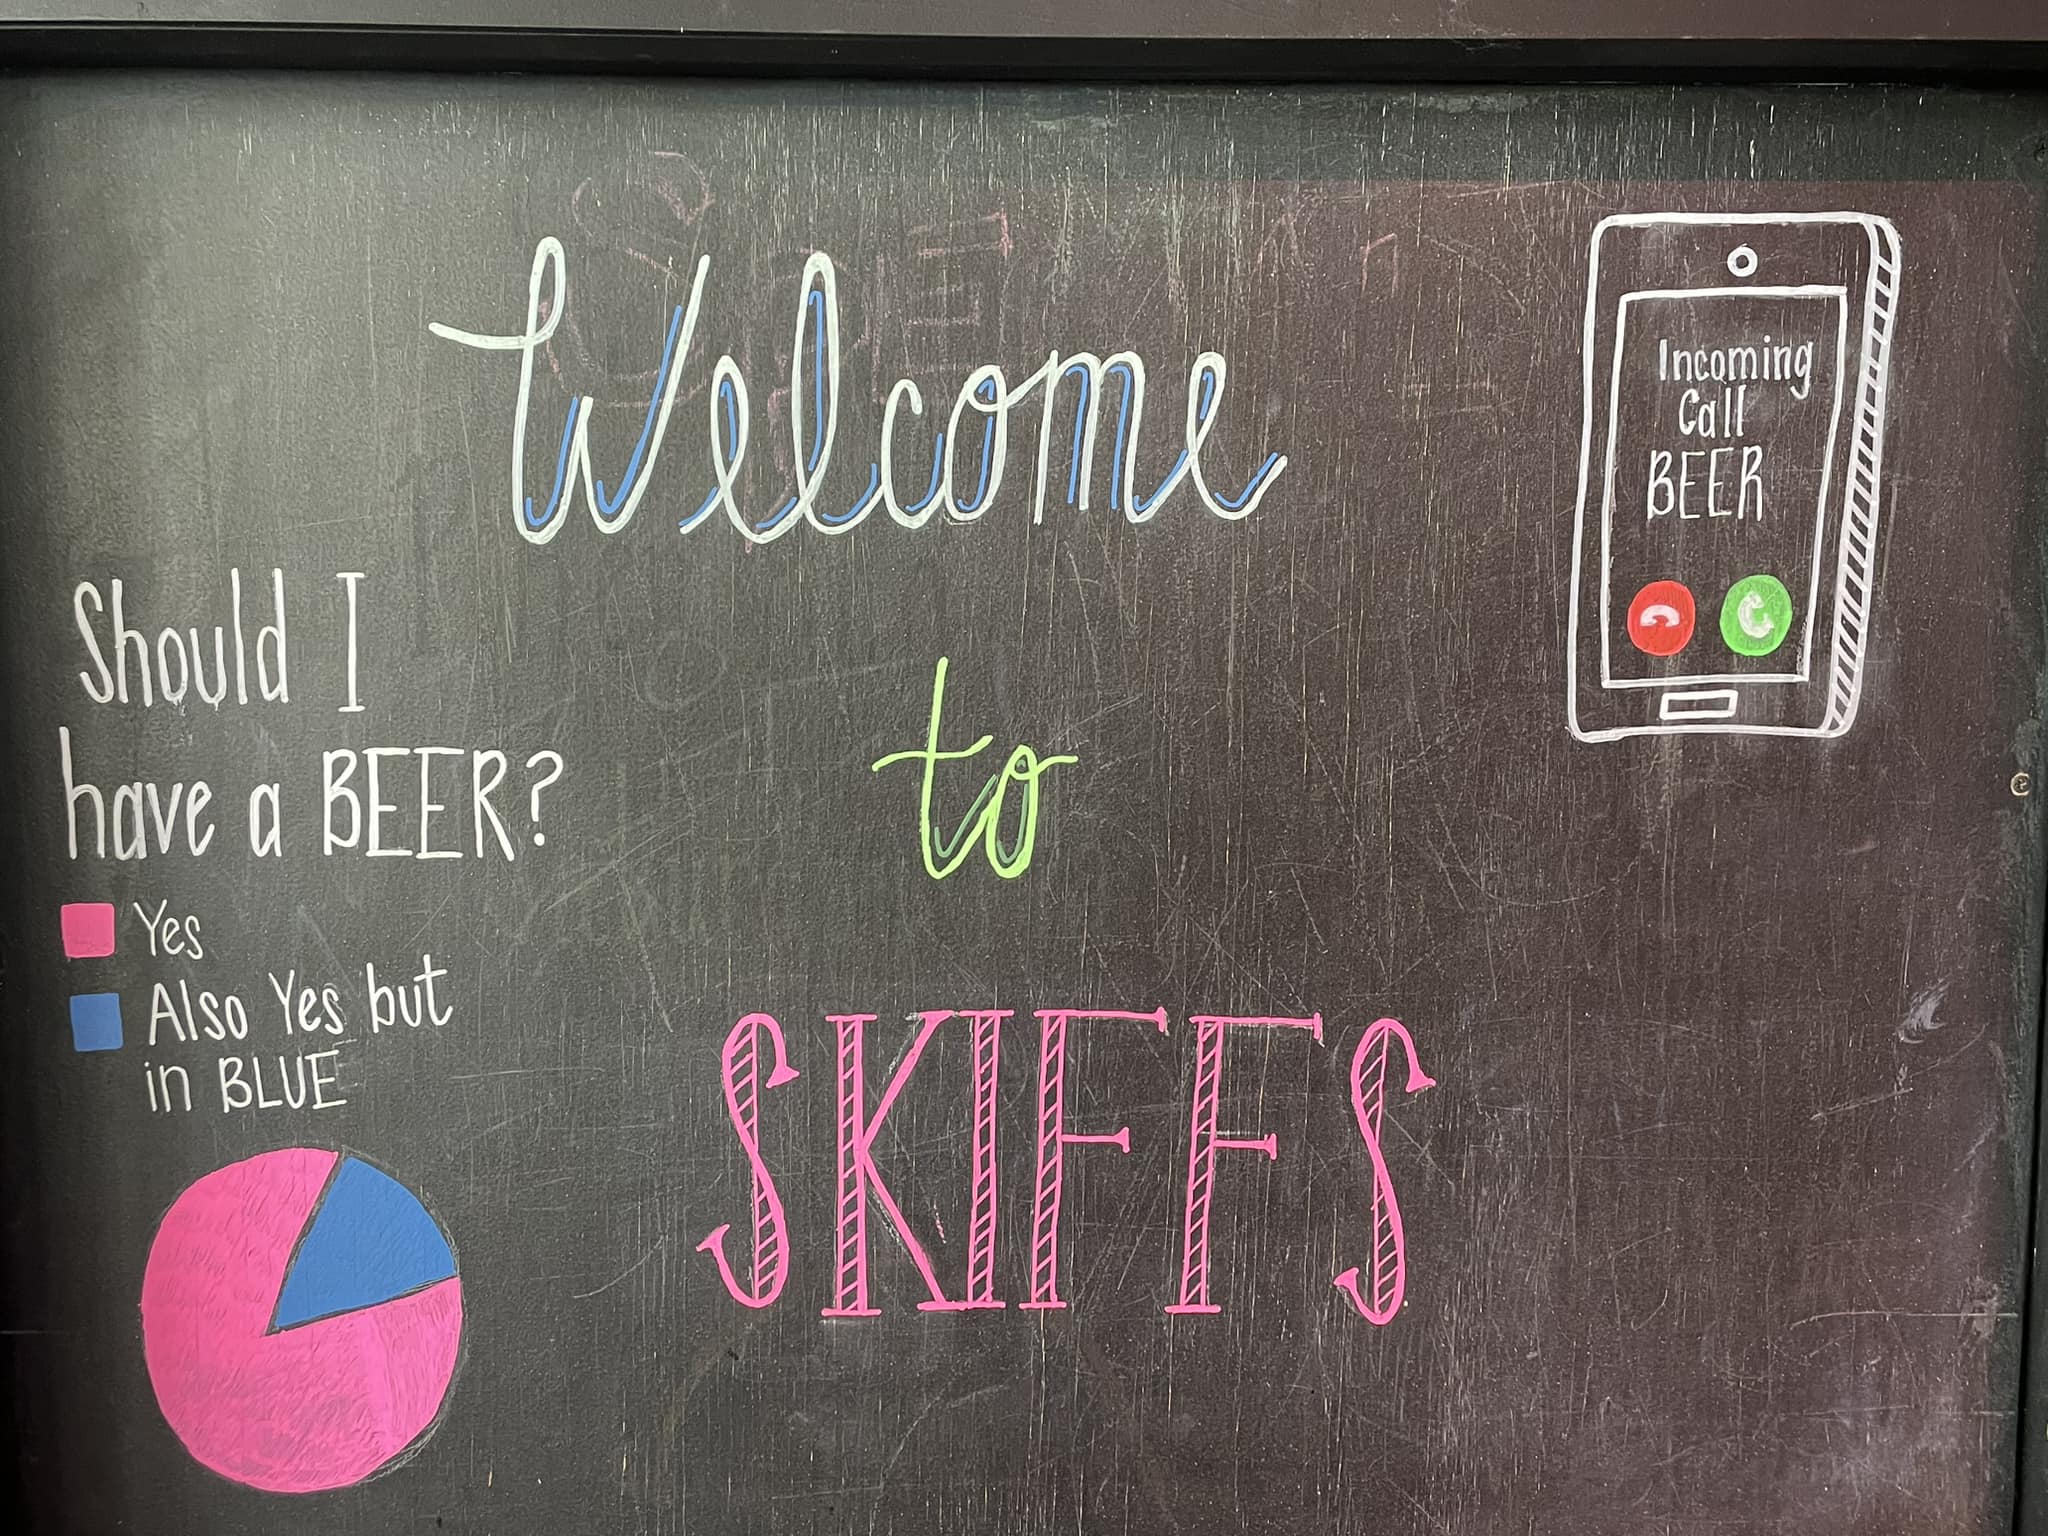 Welcome
to
SKIFFS
Should I
have a BEER?
Yes
Also Yes but
in BLUE
Incoming
Call
BEER